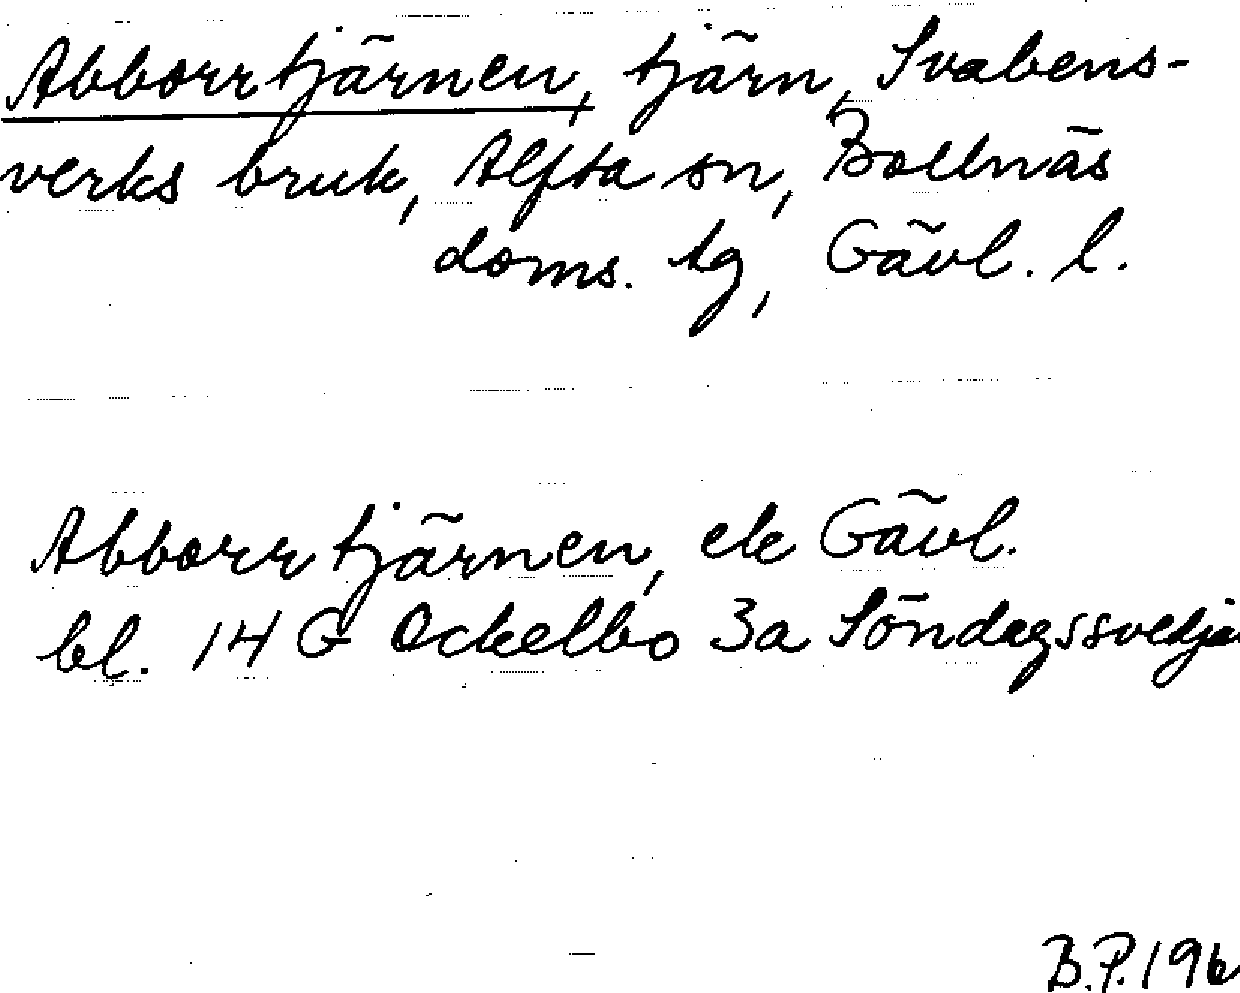 Abborrtjärnen, tjärn, Svabens-
verks bruk, Alfta sn, Bollnäs
doms. tg, Gävl. l.
Abborrtjärnen, ek Gävl.
bl. 14 G Ockelbo 3a Söndagssvedja
B.P. 196